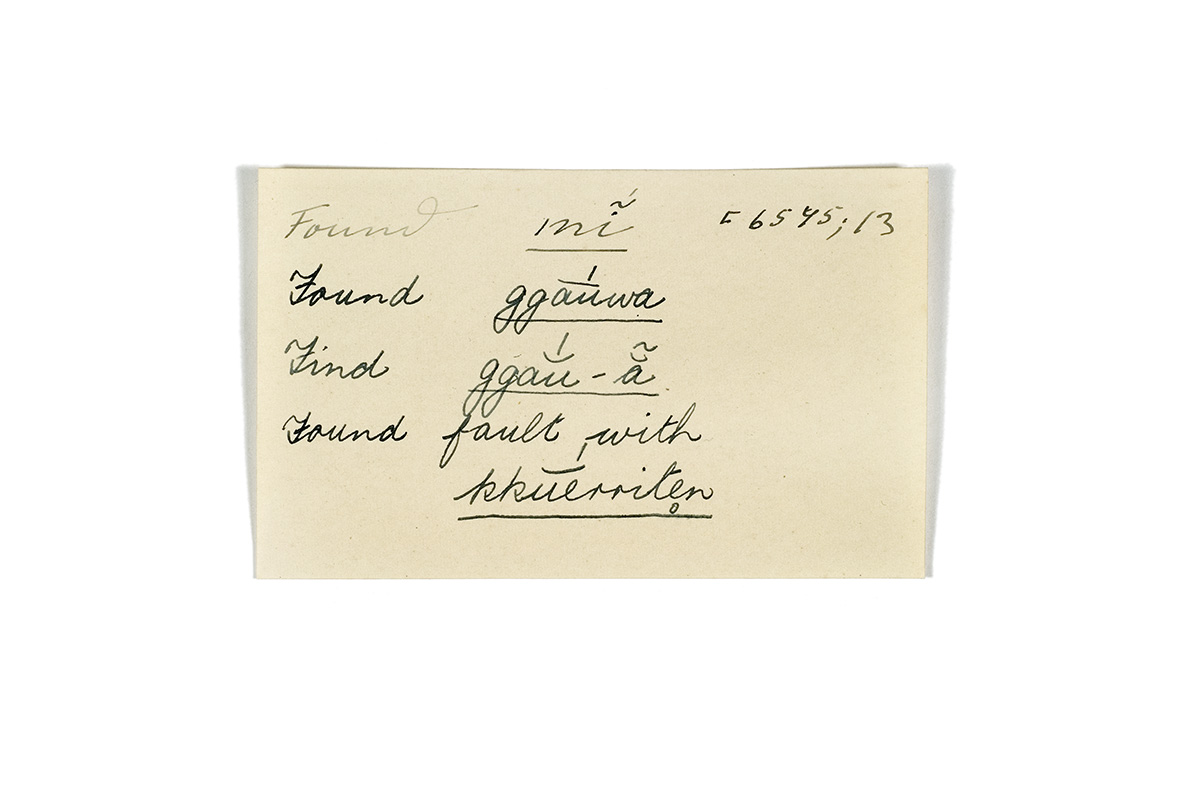 Found mĩ́ F 6545; 13
Found ggaū́wa
Find ggaū́-ã
Found fault with
kkū́erritẹn